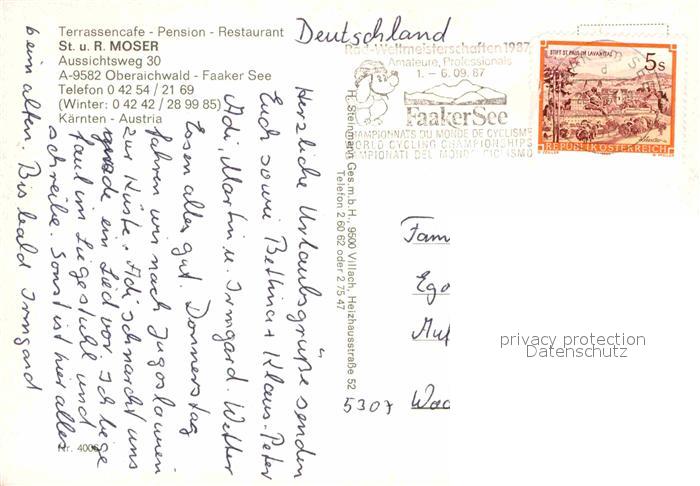 Deutschland
Terrassencafe - Pension - Restaurant
St. u. R. MOSER
Aussichtsweg 30
A-9582 Oberaichwald - Faaker See
Telefon 0 42 54 / 21 69
(Winter: 0 42 42 / 28 99 85)
Kärnten - Austria
Herzliche Urlaubsgrüße senden
Euch sowie Bettina + Klaus-Peter
Adi, Martin u. Irmgard. Wetter
Essen alles gut. Donnerstag
fahren wir nach Jugoslawien
zur Küste. Adi schnarcht uns
gerade ein Lied vor. Ich liege
faul im Liegestuhl und
schreibe. Sonst ist hier alles
beim alten. Bis bald Irmgard
Nr. 4006
H. Steinmann Ges.m.b.H., 9500 Villach, Heizhausstraße 52
Telefon 2 60 62 oder 2 75 47
Rad-Weltmeisterschaften 1987
Amateure, Professionals
1. – 6. 09. 87
FaakerSee
CHAMPIONNATS DU MONDE DE CYCLISME
WORLD CYCLING CHAMPIONSHIPS
CAMPIONATI DEL MONDO CICLISMO
STIFT ST. PAUL IM LAVANTTAL
5s
REPUBLIK ÖSTERREICH
Fam
Ego
5307 Wac
privacy protection
Datenschutz